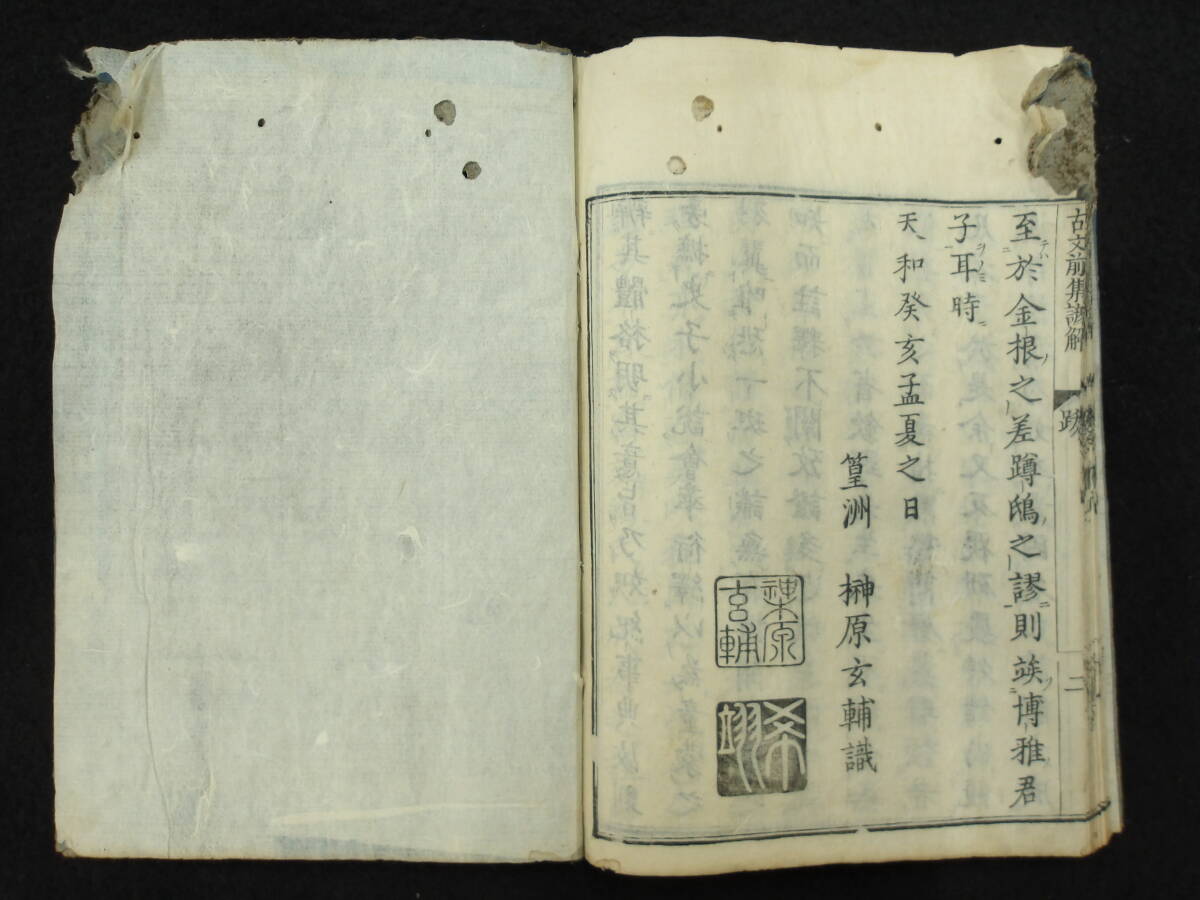 古文前集諺解 跋 二
至於金根之差蹲鴟之謬則竢博雅君
子耳時
天和癸亥孟夏之日
篁洲 榊原玄輔識
榊原
玄輔
希
翊